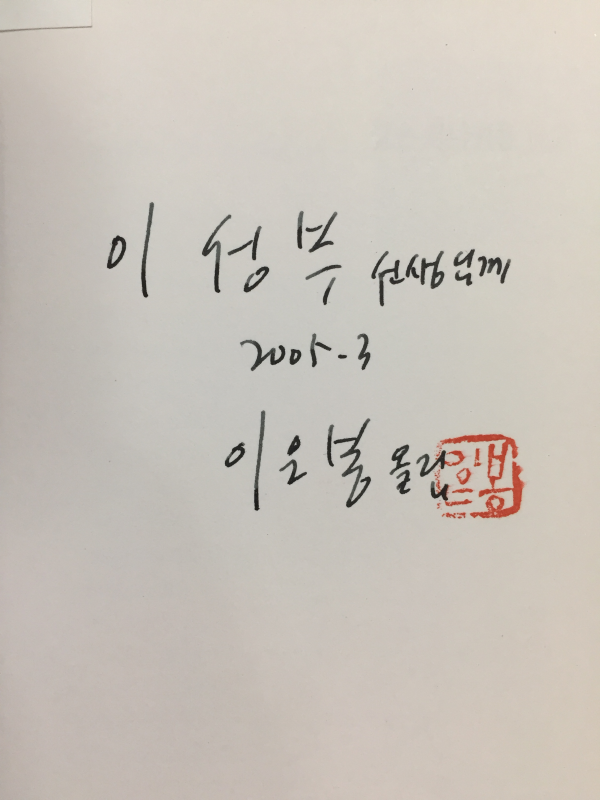 이성부 선생님께
2005-3
이은봉 올림